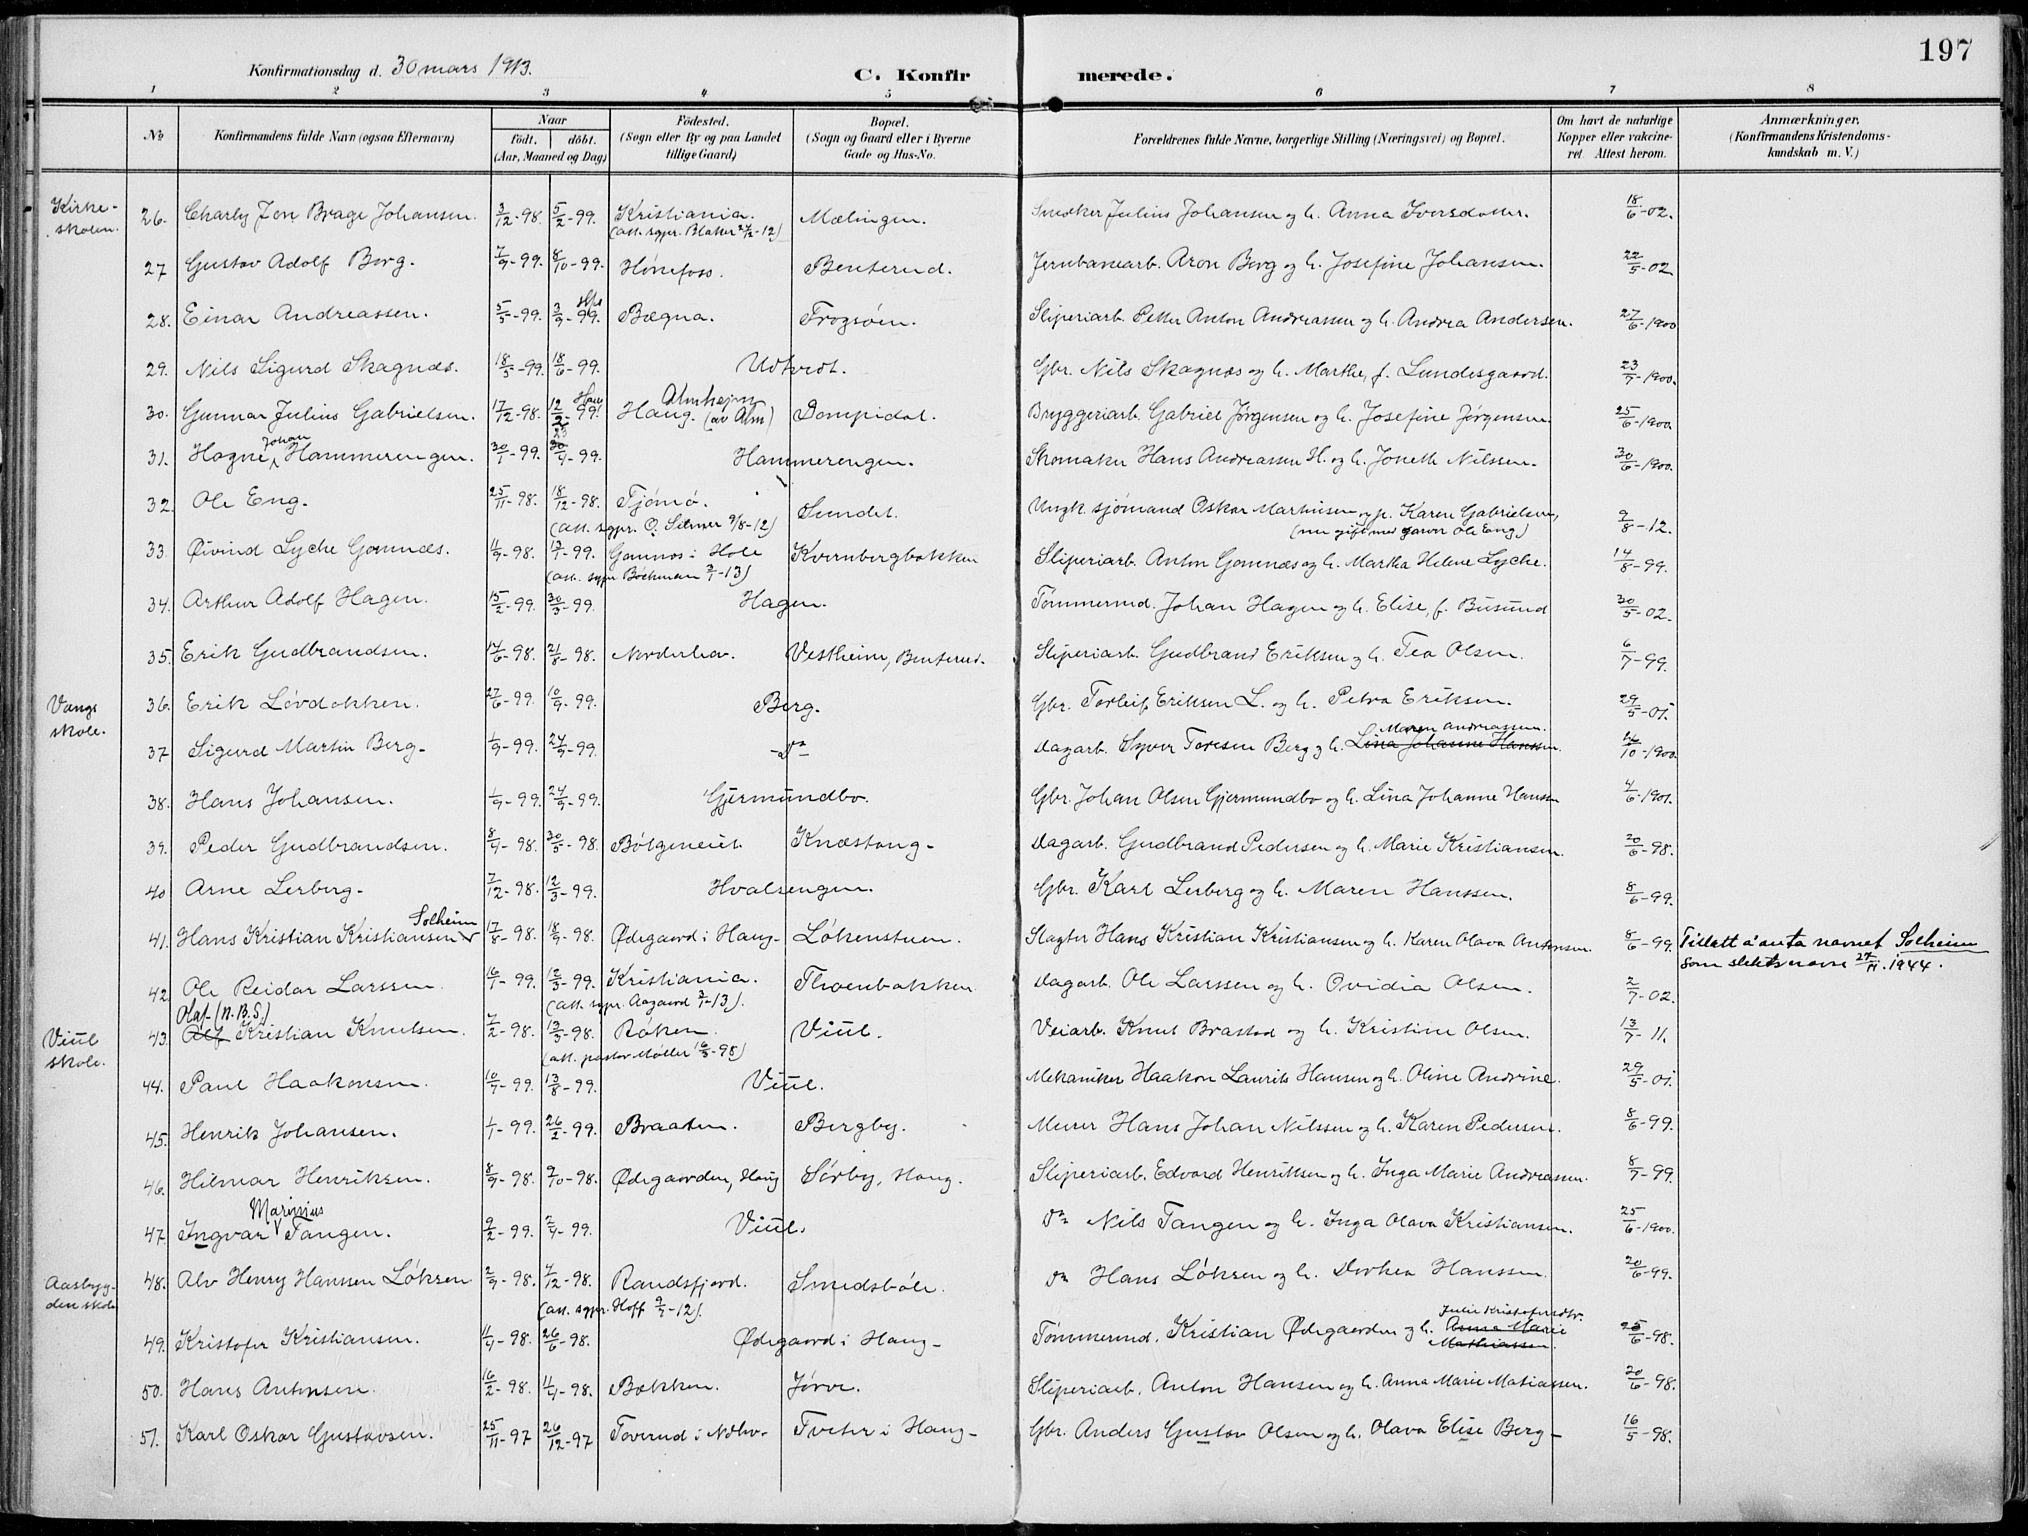 197
Konfirmationsdag d. 30 mars 1913.
C. Konfirmerede.
1 2 3 4 5 6 7 8
No
Konfirmandens fulde Navn (ogsaa Efternavn)
Naar
födt. döbt.
(Aar, Maaned og Dag)
Födested.
(Sogn eller By og paa Landet
tillige Gaard)
Bopæl.
(Sogn og Gaard eller i Byerne
Gade og Hus-No.
Forældrenes fulde Navne, borgerlige Stilling (Næringsvei) og Bopæl.
Om havt de naturlige
Kopper eller vakcine-
ret. Attest herom.
Anmærkninger.
(Konfirmandens Kristendoms-
kundskab m. V.)
Kirke-
skolen.
26. Charly Jon Brage Johansen. 3/12-98. 5/2-99. Kristiania. Mælingen. Snedker Julius Johansen og h. Anna Iversdatter. 18/6-02.
(att. sgpr. Blaker -12)
27 Gustav Adolf Berg. 7/9-99. 8/10-99. Hönefoss. Benterud. Jernbanearb. Aron Berg og h. Josefine Johansen. 22/5-02
28. Einar Andreassen. 5/5-99. 3/9-99. Bægna. Frogsöen. Sliperiarb. Petter Anton Andreassen og h. Andrea Andersen. 27/6-1900
29. Nils Sigurd Skagnæs. 18/5-99. 18/6-99. Udkvdt. Gbr. Nils Skagnæs og h. Marthe, f. Lundesgaard. 23/7-1900.
Almhejm
30. Gunnar Julius Gabrielsen. 17/12-98. 12/2-99. Haug. (av Alm) Dompidal. Bryggeriarb. Gabriel Jørgensen og h. Josefine Jørgensen. 25/6-1900.
Johan
31. Hogne Hammerengen. 30/1-99. 23/4-99. Hammerengen. Skomaker Hans Andreassen H. og h. Joneth Nilssen. 30/6-1900.
32. Ole Eng. 25/11-98. 18/12-98. Tjömö. Sundet. Ungk. sjömand Oskar Martinsen og p. Karen Gabrielsen, 9/8-12.
(att. sgpr. O. Selmer 9/8-12) (nu gift med garver Ole Eng.)
33. Øivind Lyche Gomnæs. 11/9-98. 15/1-99. Gomnæs i Hole Kvernbergbakken Sliperiarb. Anton Gomnæs og h. Martha Helene Lyche. 14/8-99.
(att. sgpr Böckman 3/1-13)
34. Arthur Adolf Hagen. 15/2-99. 30/3-99. Hagen. Tömmermd. Johan Hagen og h. Elise, f. Busund 30/5-02.
35. Erik Gudbrandsen. 14/6-98. 21/8-98. Norderhov. Vestheim, Benterud. Sliperiarb. Gudbrand Eriksen og h. Tea Olsen. 6/7-99.
Vangs
skole.
36. Erik Lövdokken. 27/6-99. 10/9-99. Berg. Gbr. Torleif Eriksen L. og h. Petra Eriksen. 29/5-01.
Maren Andreassen.
37 Sigurd Martin Berg- 1/9-99. 24/9-99. - do - dagarb. Syver Toresen Berg og h. Lina Johanne Hanssen. 16/10-1900.
38. Hans Johansen. 1/9-99. 24/9-99. Gjermundbo. Gbr. Johan Olsen Gjermundbo og h. Lina Johanne Hanssen 4/6-1901.
39. Peder Gudbrandsen. 8/4-98. 30/5-98. Knæstang- dagarb. Gudbrand Pedersen og h. Marie Kristiansen. 20/6-98.
40 Arne Lerberg- 7/12-98. 12/3-99. Hvalsengen. Gbr. Karl Lerberg og h. Maren Hanssen. 8/6-99.
Solheim
41. Hans Kristian Kristiansen 17/8-98. 18/9-98. Ødegaard i Haug- Lökenstuen. Slagter Hans Kristian Kristiansen og h. Karen Olava Antonsen. 8/6-99. Tillatt å anta navnet Solheim
som slektsnavn 27/11.1944.
42. Ole Reidar Larssen. 16/1-99. 12/3-99. Kristiania. Thoenbakken dagarb. Ole Larssen og h. Ovidia Olsen. 2/7-02.
(att. sgpr. Aagaard 3/1-13).
Olaf (N.B.S.)
Viul
skole.
43. Alf Kristian Knutsen. 7/2-98. 13/3-98. Röken. Viul. Veiarb. Knut Brastad og h. Kristine Olsen. 13/7-11.
(att. pastor Möller 16/5-98)
44. Paul Haakonsen. 10/7-99. 13/8-99. Viul. Mekaniker Haakon Laurits Hansen og h. Oline Andrine. 29/5-01.
45. Henrik Johansen. 1/1-99. 26/2-99. Braaten. Bergby. Murer Hans Johan Nilssen og h. Karen Pedersen. 8/6-99.
46. Hilmar Henriksen. 8/9-98. 9/10-98. Ødegaarden, Haug Sörby, Haug. Sliperiarb. Edvard Henriksen og h. Inga Marie Andreassen. 8/7-99.
Marinius
47. Ingvar Tangen. 9/2-99. 2/4-99. Viul. do Nils Tangen og h. Inga Olava Kristiansen. 25/6-1900.
Aasbyg-
den skole
48. Alv Henry Hanssen Löksen 2/9-98. 4/12-98. Randsfjord. Smedsböle. do Hans Löksen og h. Dorthea Hanssen. 20/6-99.
(att. sgpr. Hoff -12).
Julie Kristofersdtr.
49. Kristofer Kristiansen. 11/4-98. 26/6-98. Ødegaard i Haug- Tömmermd. Kristian Ødegaarden og h. Anna Marie 25/6-98.
Mathiassen.
50. Hans Antonsen. 16/2-98. 11/4-98. Bakken. Jörve. Sliperiarb. Anton Hansen og h. Anna Marie Matiassen. 20/6-98.
51. Karl Oskar Gustavsen. 25/11-97 26/12-97 Toverud i Ndhv. Tveter i Haug- Gbr. Anders Gustav Olsen og h. Olava Elise Berg- 16/5-98.